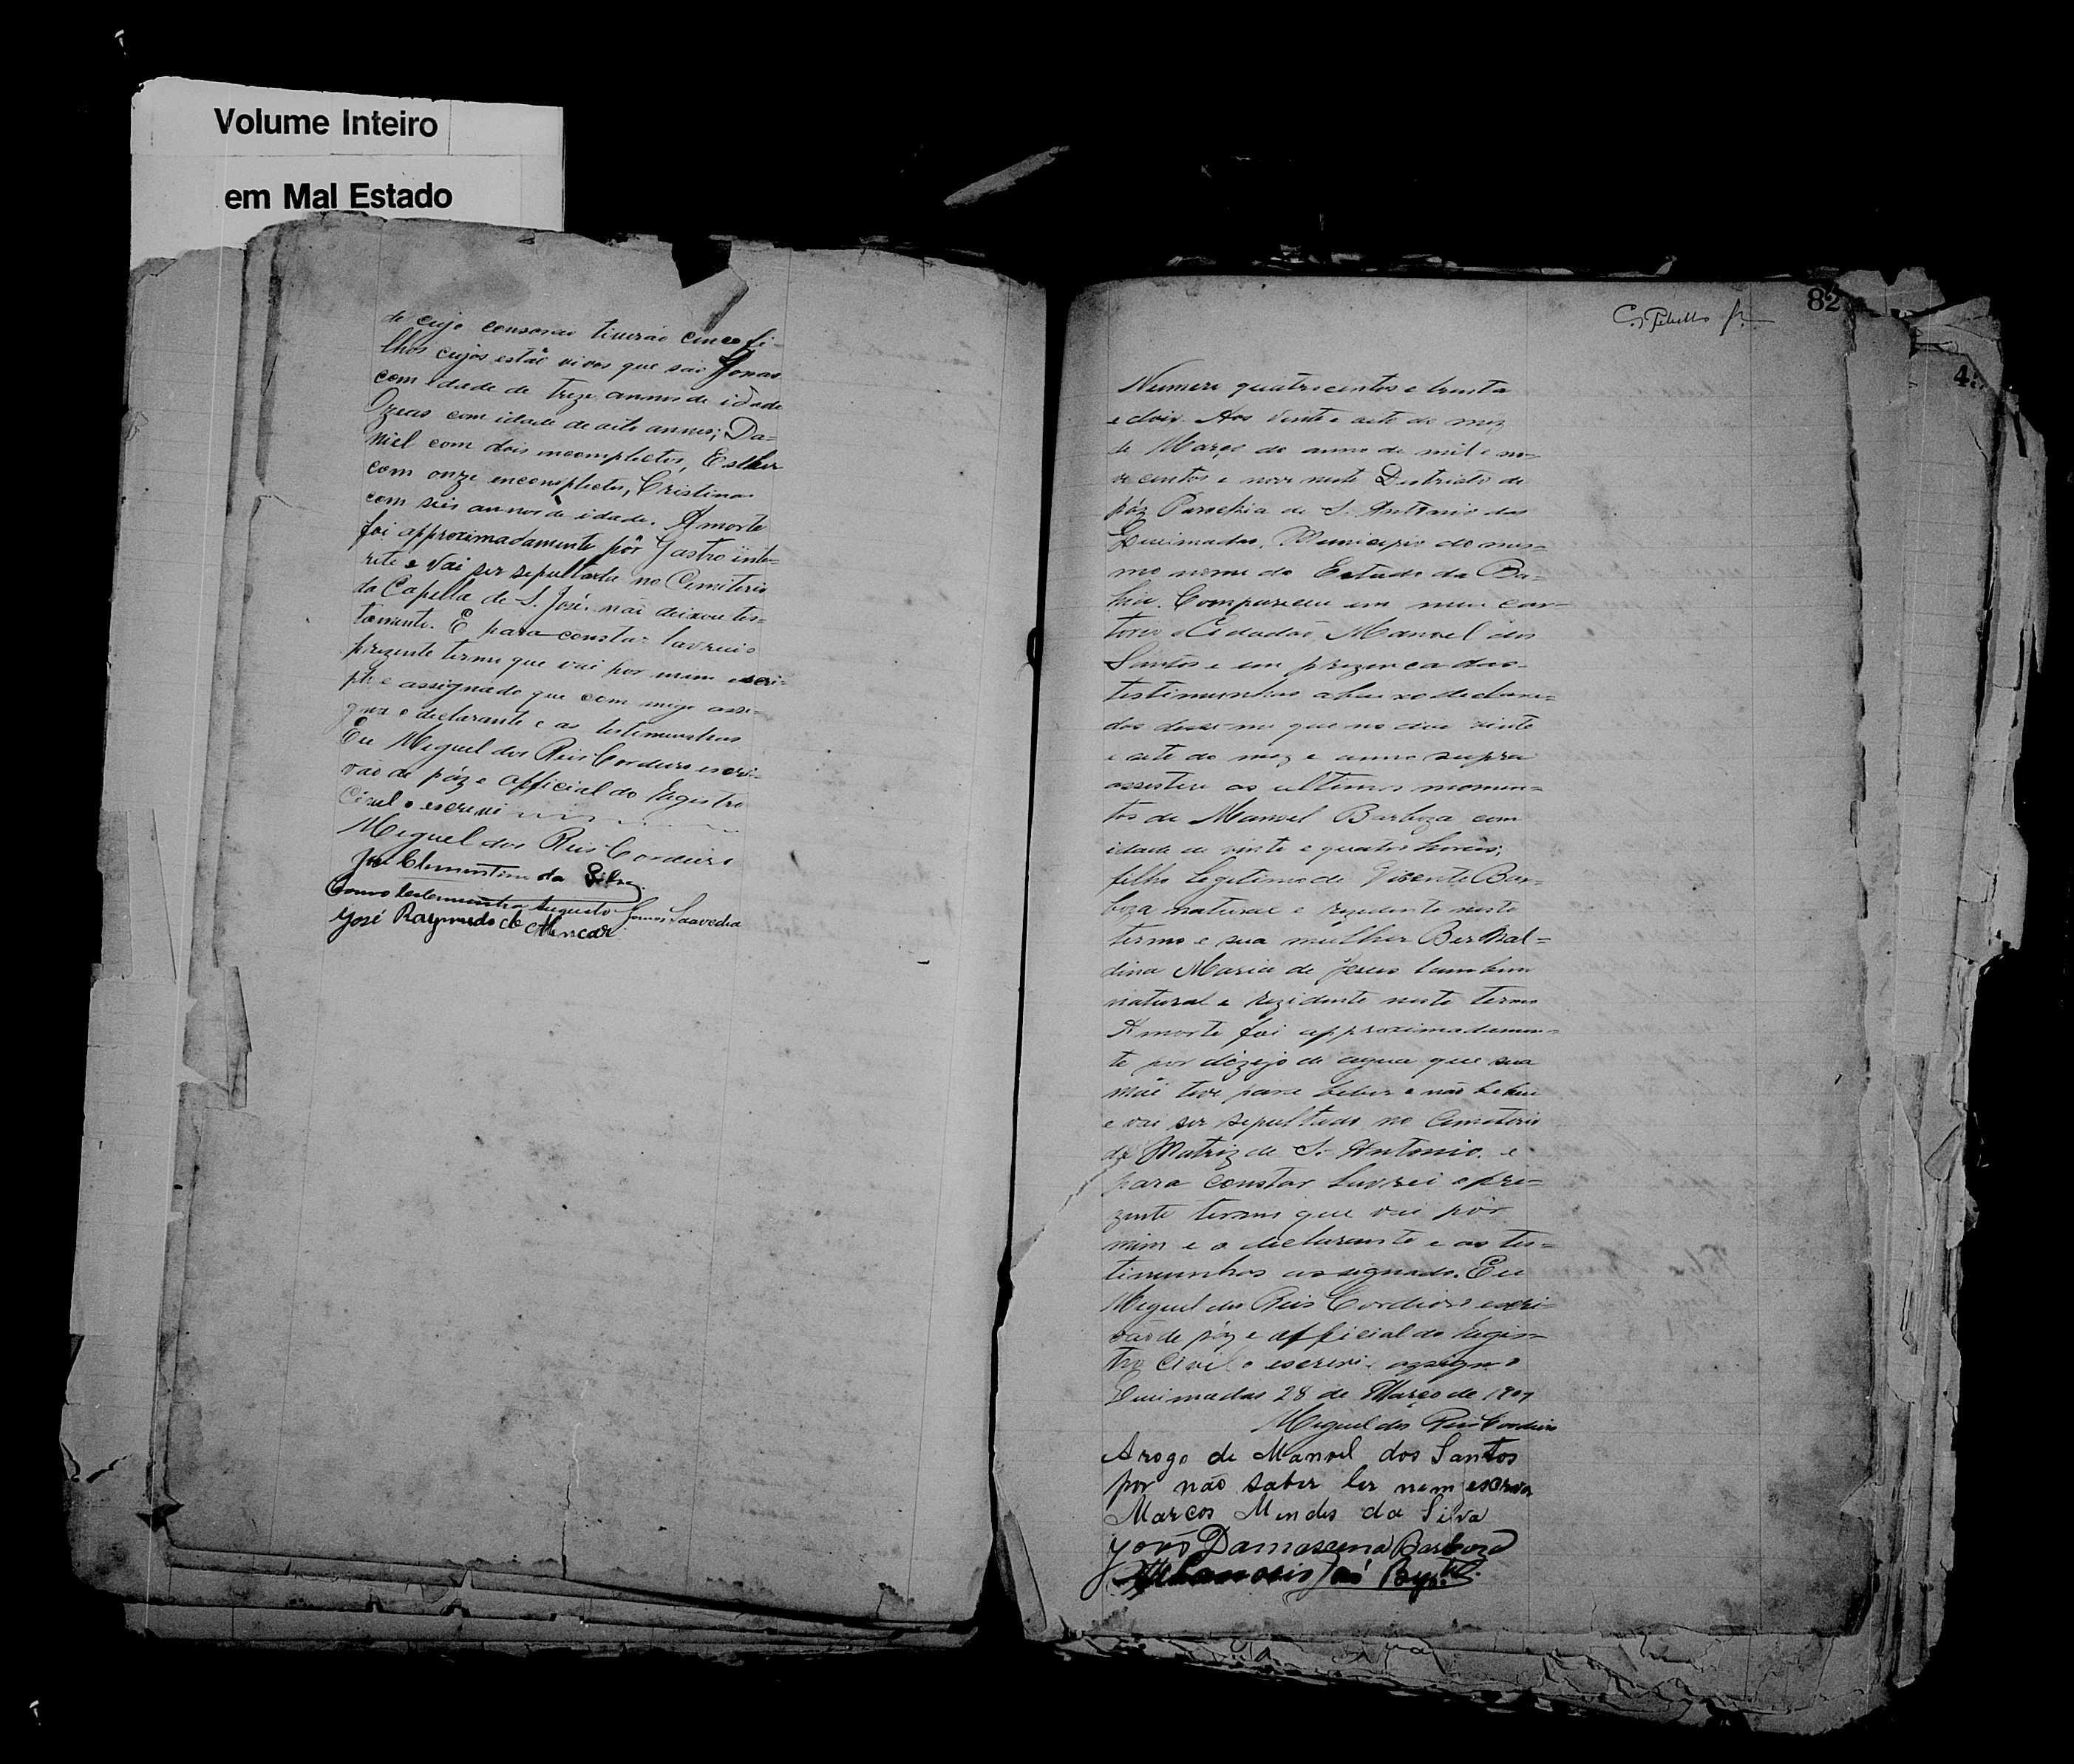 Volume Inteiro
em Mal Estado
de cujo consorcio tiverão cinco fi-
lhos cujos estão vivos que são Jonas
com idade de treze annos de idade
Ozeas com idade de oito annos; Da=
niel com dois incompletos, Esther
com onze incompletos, Cristina
com seis annos de idade. A morte
foi approximadamente pôr Gastro inte-
rite e vai ser sepultada no Cemiterio
da Capella de S. José. não deixou tes-
tamento. E para constar lavrei o
prezente termo que vai por mim escri-
pto e assignado que com migo assi-
gna o declarante e as testemunhas
Eu Miguel dos Reis Cordeiro escri-
vão de páz e official do Registro
Civil o escrevi
Miguel dos Reis Cordeiro
José Clementino da Silva
Como testemunha Augusto Gomes Saavedra
José Raymundo de Alencar
82
Numero quatrocentos e trinta
e dois. Aos vinte e oito do mez
de Março do anno de mil e no-
vecentos e nove neste Districto de
páz Parochia de S. Antonio das
Queimadas, Municipio do mes=
mo nome do Estado da Ba=
hia. Compareceu em meu car-
torio o Cidadão, Manoel dos
Santos e em prezenca das
testimunhas abaixo declara-
das disse-me que no dia vinte
e sete do mez e anno supra
assistiu os ultimos momen=
tos de Manoel Barboza com
idade de vinte e quatro horas;
filho legitimo de Vicente Bar=
boza natural e rezidente neste
termo e sua mulher Bernal=
dina Maria de Jesus tambem
natural e rezidente neste termo
A morte foi approximadamen=
te por dezejo de agua que sua
mãe teve para beber e não bebeu
e vai ser sepultado no Cemiterio
da Matriz de S. Antonio. e
para constar Lavrei o pre=
zente termo que vai por
mim e o declarante e as tes=
timunhas assignado. Eu
Miguel dos Reis Cordeiro escri-
vão de páz e official do Regis=
tro Civil o escrevi e assigno
Queimadas 28 de Março de 1909
Miguel dos Reis Cordeiro
Arogo de Manoel dos Santos
por não saber ler nem escrever
Marcos Mendes da Silva
João Damascena Barboza
José